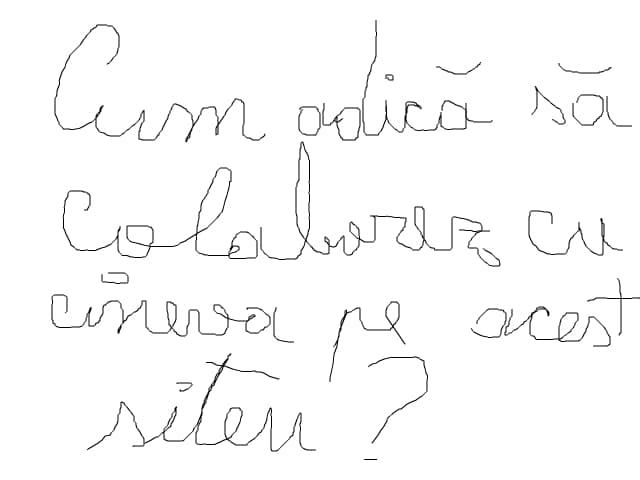 Cum adică să
colaborez cu
cineva pe acest
siteu?